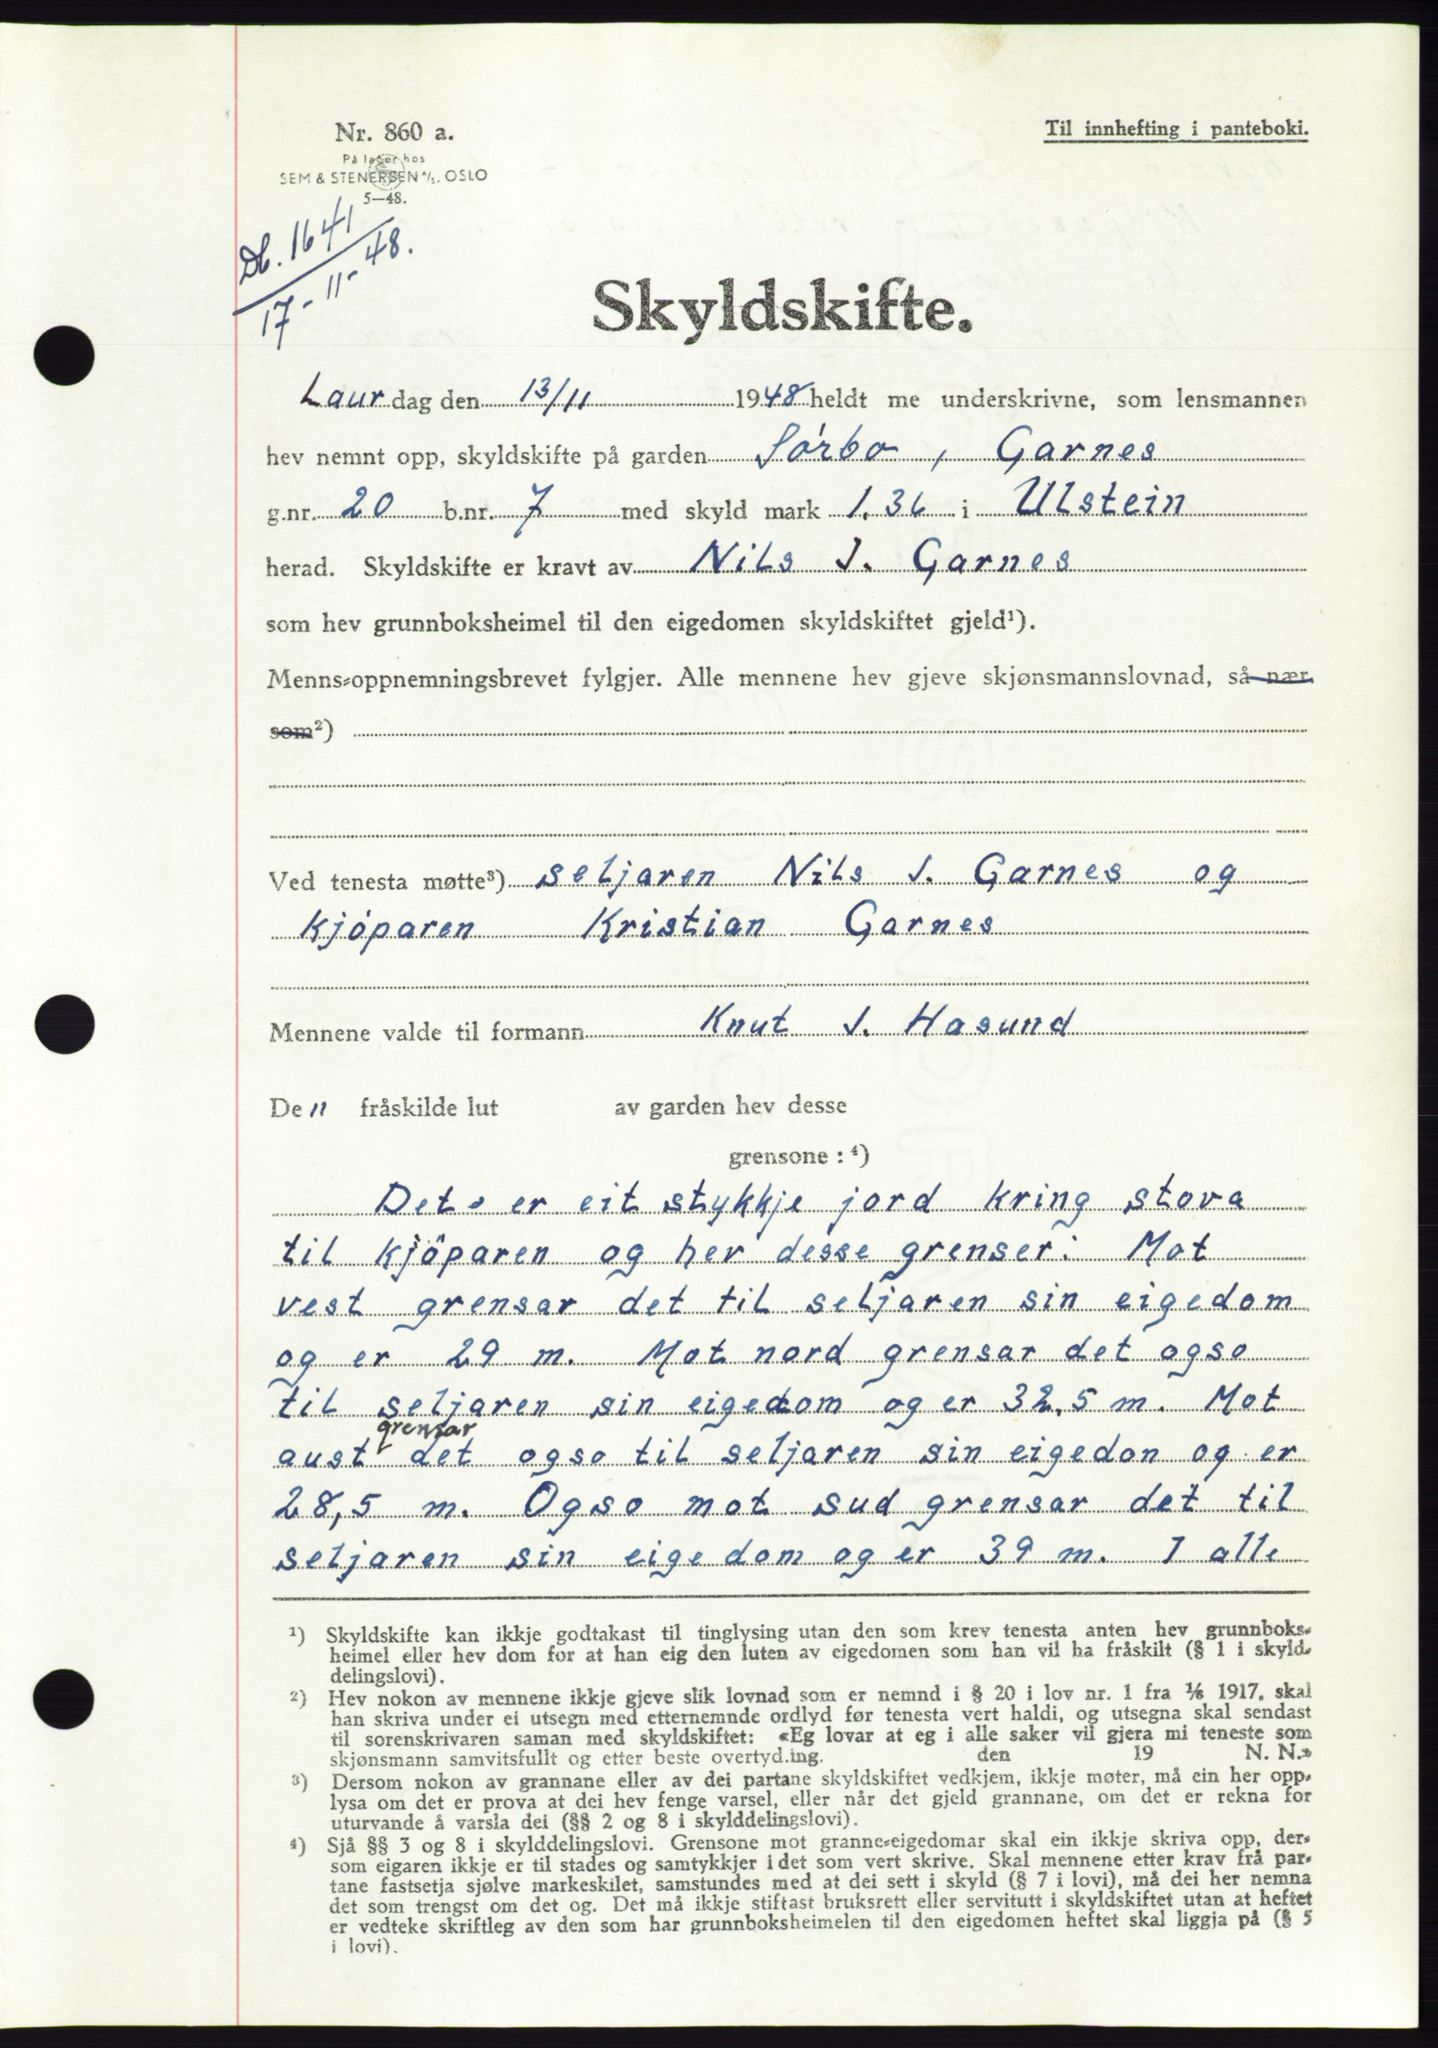 Nr. 860 a.
På lager hos
SEM & STENERSEN A/S, OSLO
5—48.
Til innhefting i panteboki.
Db. 1641
17-11-48.
Skyldskifte.
Laurdag den 13/11 1948 heldt me underskrivne, som lensmannen
hev nemnt opp, skyldskifte på garden Sórbo, Garnes
g.nr. 20 b.nr. 7 med skyld mark 1.36 i Ulstein
herad. Skyldskifte er kravt av Nils J. Garnes
som hev grunnboksheimel til den eigedomen skyldskiftet gjeld¹).
Menns-oppnemningsbrevet fylgjer. Alle mennene hev gjeve skjønsmannslovnad, så nær
som²)
Ved tenesta møtte³) seljaren Nils J. Garnes og
kjóparen Kristian Garnes
Mennene valde til formann Knut J. Hasund
De n fråskilde lut av garden hev desse
grensone : ⁴)
Det er eit stykkje jord kring stova
til kjöparen og her desse grenser: Mot
vest grensar det til seljaren sin eigedom
og er 29 m. Mot nord grensar det ogso
til seljaren sin eigedom og er 32,5 m. Mot
grensar
aust det ogso til seljaren sin eigedon og er
28,5 m. Ogso mot sud grensar det til
seljaren sin eigedom og er 39 m. I alle
¹) Skyldskifte kan ikkje godtakast til tinglysing utan den som krev tenesta anten hev grunnboks-
heimel eller hev dom for at han eig den luten av eigedomen som han vil ha fråskilt (§ 1 i skyld-
delingslovi).
²) Hev nokon av mennene ikkje gjeve slik lovnad som er nemnd i § 20 i lov nr. 1 fra 1/6 1917, skal
han skriva under ei utsegn med etternemnde ordlyd før tenesta vert haldi, og utsegna skal sendast
til sorenskrivaren saman med skyldskiftet: «Eg lovar at eg i alle saker vil gjera mi teneste som
skjønsmann samvitsfullt og etter beste overtyd.ing. den 19 N. N.»
³) Dersom nokon av grannane eller av dei partane skyldskiftet vedkjem, ikkje møter, må ein her opp-
lysa om det er prova at dei hev fenge varsel, eller når det gjeld grannane, om det er rekna for
uturvande å varsla dei (§§ 2 og 8 i skylddelingslovi).
⁴) Sjå §§ 3 og 8 i skylddelingslovi. Grensone mot granne-eigedomar skal ein ikkje skriva opp, der-
som eigaren ikkje er til stades og samtykkjer i det som vert skrive. Skal mennene etter krav frå par-
tane fastsetja sjølve markeskilet, samstundes med at dei sett i skyld (§ 7 i lovi), må dei her nemna
det som trengst om det og. Det må ikkje stiftast bruksrett eller servitutt i skyldskiftet utan at heftet
er vedteke skriftleg av den som har grunnboksheimelen til den eigedomen heftet skal liggja på (§ 5
i lovi).